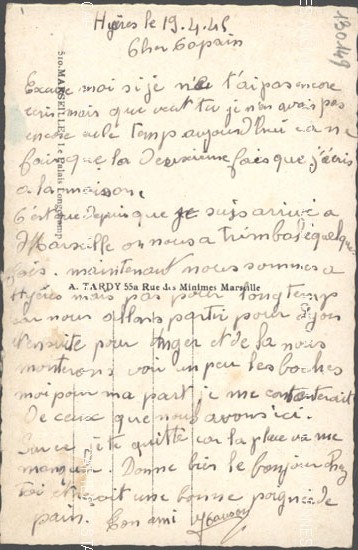 Hyères le 19.4.45
130149
Cher Copain
Excuse moi si je ne t'ai pas encore
écris mais que veut tu je n'en avais pas
encore eu le temp aujourd'hui ca ne
fais que la Deuxième fois que j'écris
a la maison.
C'est que depuis que je suis arrivé a
Marseille on nous a trimbalé quelque
fois. maintenant nous sommes a
Hyères mais pas pour longtemp
car nous allons partir pour Dijon
ensuite pour Anger et de la nous
monterons voir un peu les boches
moi pour ma part je me contenterait
De ceux que nous avons ici.
Sur ce je te quitte car la place va me
manquer. Donne bien le bonjour chez
toi et reçoit une bonne poigné de
pain. Ton ami
510. MARSEILLE - Le Palais Longchamp
A. TARDY 55a Rue des Minimes Marseille